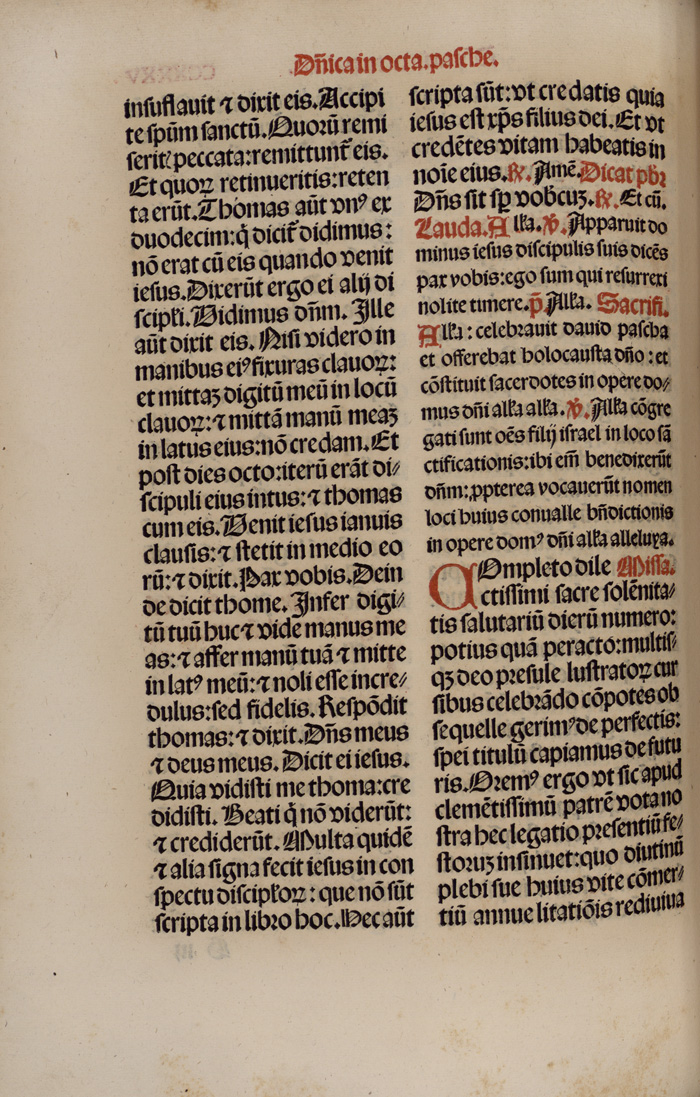 Dñica in octa. pasche.
insuflauit ⁊ dixit eis. Accipi
te spũm sanctũ. Quorũ remi
seritꝭ peccata: remittunt᷑ eis.
Et quoꝝ retinueritis: reten
ta erũt. Thomas aũt vnꝰ ex
duodecim: q̃ dicit᷑ didimus:
nõ erat cũ eis quando venit
iesus. Dixerũt ergo ei alij di
scipꝉi. Uidimus dñm. Ille
aũt dixit eis. Nisi videro in
manibus eiꝰ fixuras clauoꝝ:
et mittaꝫ digitũ meũ in locũ
clauoꝝ: ⁊ mittã manũ meaꝫ
in latus eius: nõ credam. Et
post dies octo: iterũ erãt di⸗
scipuli eius intus: ⁊ thomas
cum eis. Uenit iesus ianuis
clausis: ⁊ stetit in medio eo
rũ: ⁊ dixit. Pax vobis. Dein
de dicit thome. Infer digi⸗
tũ tuũ huc ⁊ vide manus me
as: ⁊ affer manũ tuã ⁊ mitte
in latꝰ meũ: ⁊ noli esse incre⸗
dulus: sed fidelis. Respõdit
thomas: ⁊ dixit. Dñs meus
⁊ deus meus. Dicit ei iesus.
Quia vidisti me thoma: cre
didisti. Beati q̃ nõ viderũt:
⁊ crediderũt. Multa quidẽ
⁊ alia signa fecit iesus in con
spectu discipꝉoꝝ: que nõ sũt
scripta in libro hoc. Hec aũt
scripta sũt: vt credatis quia
iesus est xp̃s filius dei. Et vt
credẽtes vitam habeatis in
noĩe eius. ℟. Amẽ. Dicat pb̃r
Dñs sit sp̲ vobcuꝫ. ℟. Et cũ.
Lauda. Alꝉa. ℣. Apparuit do
minus iesus discipulis suis dicẽs
pax vobis: ego sum qui resurrexi
nolite timere. p̃. Alꝉa. Sacrifi.
Alꝉa: celebrauit dauid pascha
et offerebat holocausta dño: et
cõstituit sacerdotes in opere do⸗
mus dñi alꝉa alꝉa. ℣. Alꝉa cõgre
gati sunt oẽs filij israel in loco sã
ctificationis: ibi em̃ benedixerũt
dñm: ꝓpterea vocauerũt nomen
loci huius conualle bñdictionis
in opere domꝰ dñi alꝉa alleluya.
COmpleto dile Missa.
ctissimi sacre solẽnita⸗
tis salutariũ dierũ numero:
potius quã peracto: multis⸗
qꝫ deo presule lustratoꝝ cur
sibus celebrãdo cõpotes ob
sequelle gerimꝰ de perfectis:
spei titulũ capiamus de futu
ris. Oremꝰ ergo vt sic apud
clemẽtissimũ patrẽ vota no
stra hec legatio presentiũ fe⸗
storuꝫ insinuet: quo diutinũ
plebi sue huius vite cõmer⸗
tiũ annue litatiõis rediuiua